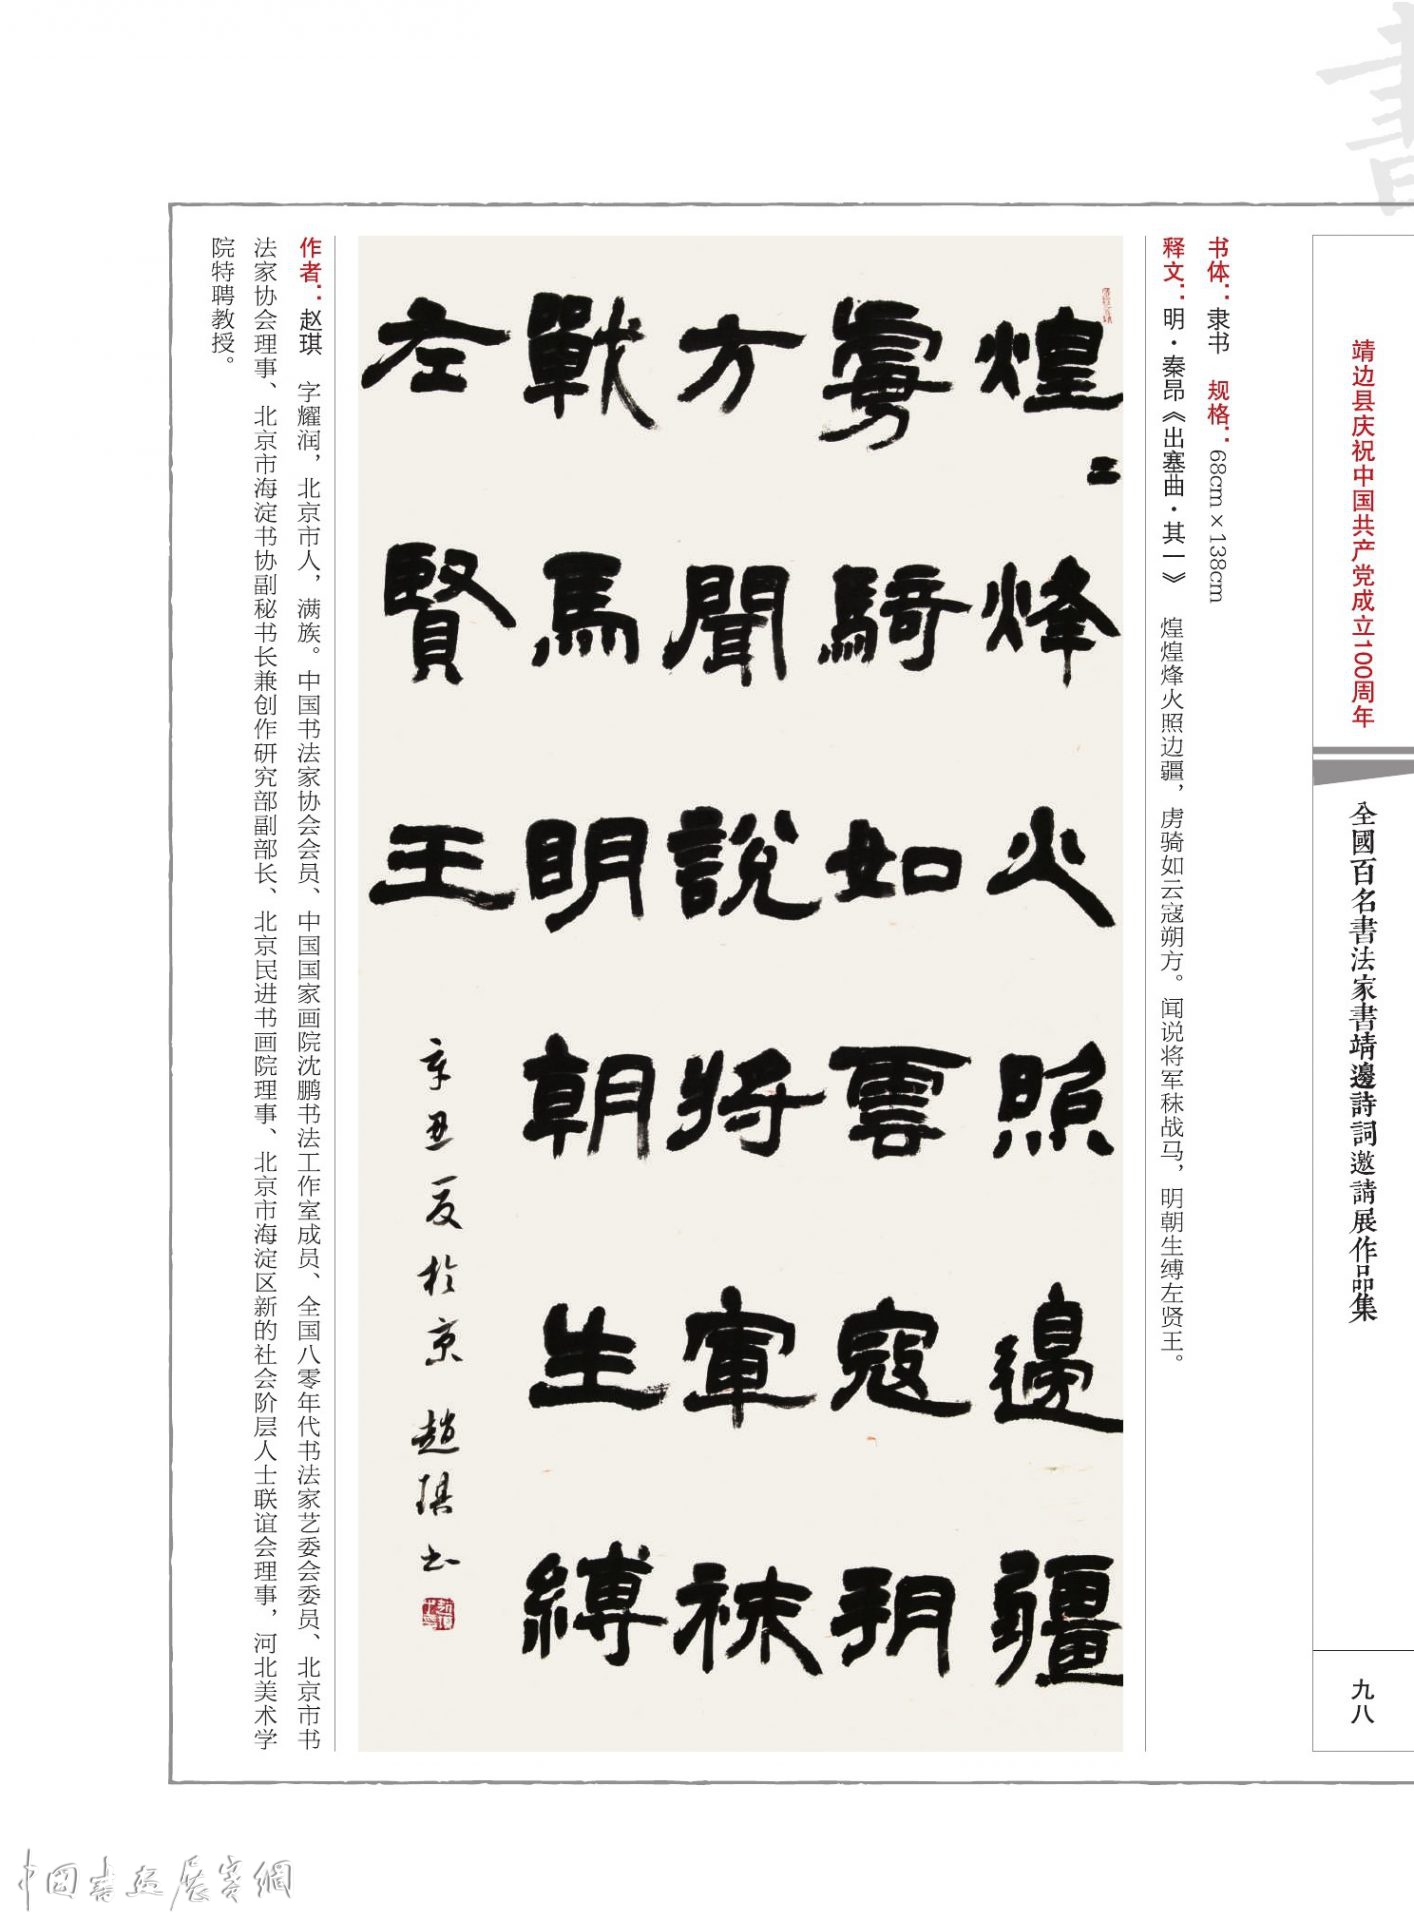 書
靖边县庆祝中国共产党成立100周年
全國百名書法家書靖邊詩詞邀請展作品集
九八
书体：隶书 规格：68cm×138cm
释文：明·秦昂《出塞曲·其一》 煌煌烽火照边疆，虏骑如云寇朔方。闻说将军秣战马，明朝生缚左贤王。
煌〻烽火照邊疆
虜騎如雲寇朔
方聞說將軍秣
戰馬明朝生縛
左賢王
辛丑夏於京趙琪书
作者：赵琪 字耀润，北京市人，满族。中国书法家协会会员、中国国家画院沈鹏书法工作室成员、全国八零年代书法家艺委会委员、北京市书
法家协会理事、北京市海淀书协副秘书长兼创作研究部副部长、北京民进书画院理事、北京市海淀区新的社会阶层人士联谊会理事，河北美术学
院特聘教授。
中國書画展賽網